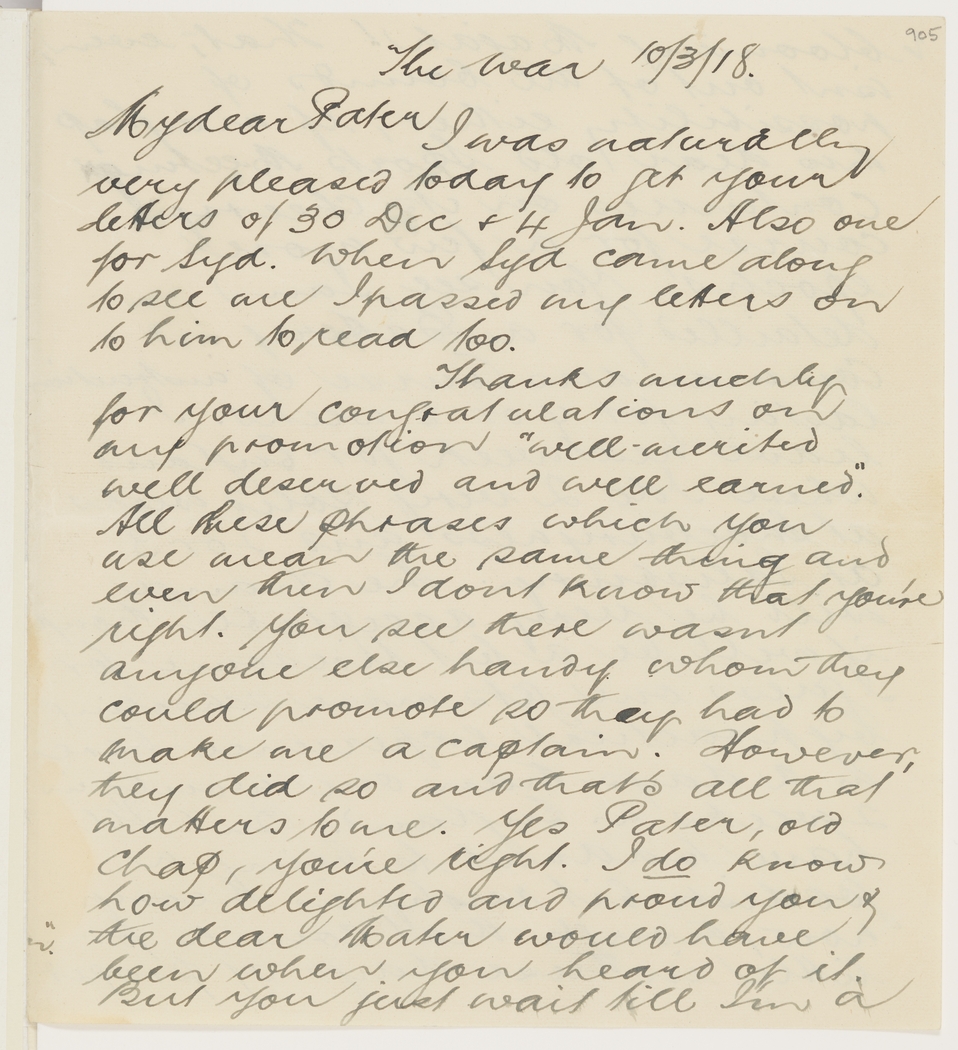 905
The War 10/3/18.
My dear Pater
I was naturally
very pleased today to get your
letters of 30 Dec & 4 Jan. Also one
for Syd. When Syd came along
to see me I passed my letters on
to him to read too.
Thanks muchly
for your congratulations on
my promotion "well-merited
well deserved and well earned".
All these phrases which you
use mean the same thing and
even then I dont know that you're
right. You see there wasnt
anyone else handy whom they
could promote so they had to
make me a captain. However,
they did so and that's all that
matters to me. Yes Pater, old
chap, you're right. I do know
how delighted and proud you &
the dear Mater would have
been when you heard of it.
But you just wait till I'm a